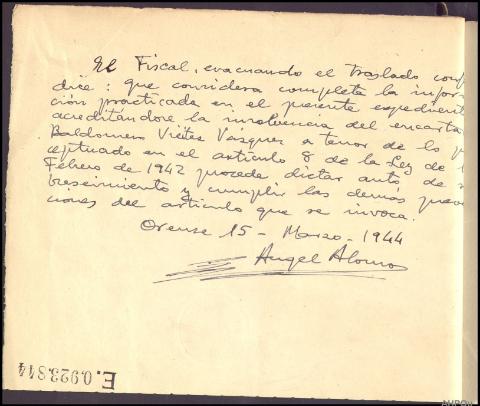 El Fiscal, evacuando el traslado conf
dice: que considera completa la infor
ción practicada en el presente expedient
acreditándose la insolvencia del encarta
Baldomero Vieites Vázquez a tenor de lo p
ceptuado en el artículo 8 de la Ley de
Febrero de 1942 procede dictar auto de s
breseimiento y cumplir las demás preve
ciones del artículo que se invoca.
Orense 15 - Marzo - 1944
Angel Alonso
E. 0.923.844
AHPOu